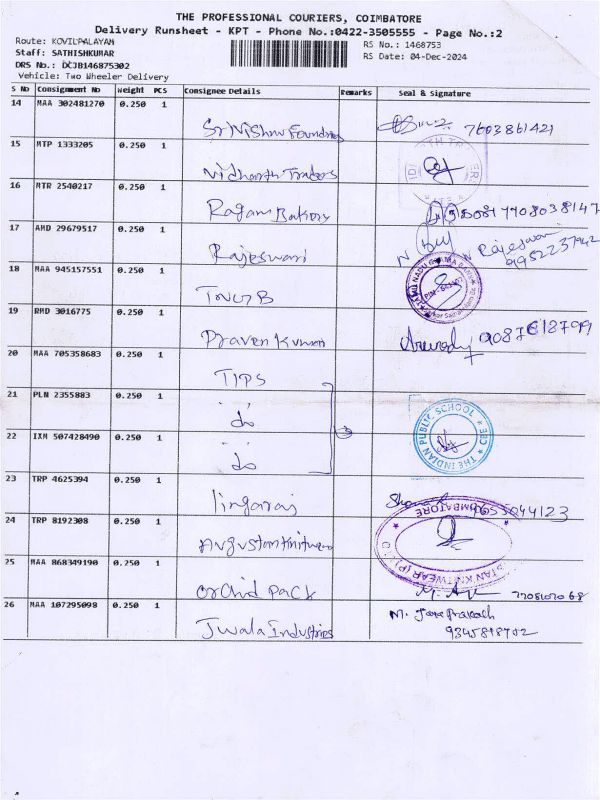 THE PROFESSIONAL COURIERS, COIMBATORE
Delivery Runsheet - KPT - Phone No.:0422-3505555 - Page No.:2
Route: KOVILPALAYAM RS No.: 1468753
Staff: SATHISHKUMAR RS Date: 04-Dec-2024
DRS No.: DCJB146875302
Vehicle: Two Wheeler Delivery
S No Consignment No Weight PCS Consignee Details Remarks Seal & Signature
14 MAA 302481270 0.250 1
Sri Nishnu Foundries 7603861421
15 MTP 1333205 0.250 1
Nidharth Traders
16 MTR 2540217 0.250 1
Ragam Bakery 7708038147
17 AMD 29679517 0.250 1
Rajeswari N Rajeswari
9952237942
18 MAA 945157551 0.250 1
TNGB
TAMIL NADU GRAMA BANK
19 RMD 3016775 0.250 1
Praven Kumar 9087618799
20 MAA 705358683 0.250 1
TIPS
21 PLN 2355883 0.250 1
do
CBE ★ THE INDIAN PUBLIC SCHOOL ★
22 IXM 507428490 0.250 1
do
23 TRP 4625394 0.250 1
lingaraj 9655044123
24 TRP 8192308 0.250 1
Augustan Knitwear
COIMBATORE
STAN KNITWEAR (P)
25 MAA 868349190 0.250 1
Orchid Pack
26 MAA 107295098 0.250 1
Jwala Industries M. Jaya Prakash
9345818702